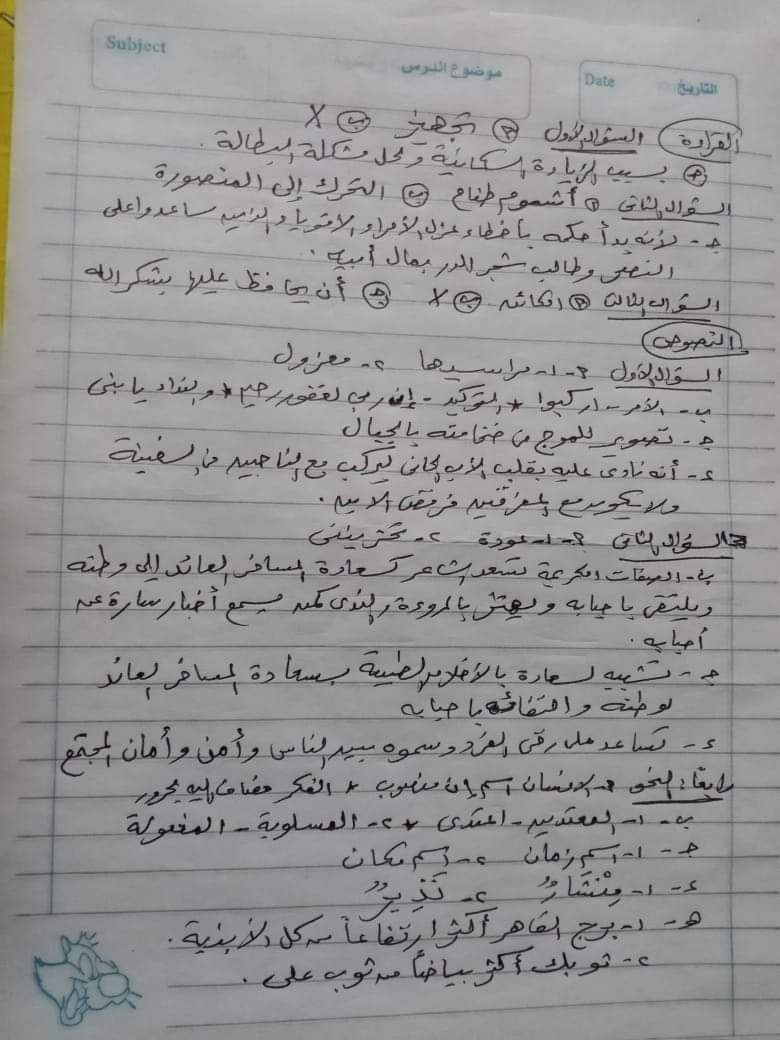 Subject
موضوع الدرس
التاريخ Date
القراءة السؤال الأول (أ) تجهيز (ب) X
(ج) بسبب الزيادة السكانية ولحل مشكلة البطالة.
السؤال الثانى (أ) أشموم طناح (ب) التحرك إلى المنصورة
ج- لأنه بدأ حكمه بأخطاء عزل الأمراء الأقوياء والذين ساعدوا على
النصر وطالب شجر الدر بمال أبيه.
السؤال الثالث (أ) (ب) X (ج) أن يحافظ عليها بشكر الله
النصوص
السؤال الأول أ- ١- مراسيها ٢- معزول
ب- الأمر - اركبوا * التوكيد - إن ربي لغفور رحيم * والنداء يا بنى
ج- تصوير للموج من ضخامته بالجبال
د- أنه نادى عليه بقلب الأب الحانى ليركب مع الناجين من السفينة
ولا يكون مع المغرقين فرفض الابن.
السؤال الثانى أ- ١- عودة ٢- تحزيننى
ب- الصفات الكريمة تسعد الشاعر كسعادة المسافر العائد إلى وطنه
ويلتقى بأحبابه ويهتز بالمروءة والندى كمن يسمع أخبار سارة عن
أحبابه.
ج- تشبيه لسعادة بالأخلاق الطيبة بسعادة المسافر العائد
لوطنه والتقائه بأحبابه
د- تساعد على رقى الفرد وسموه بين الناس وأمن وأمان المجتمع
رابعًا: النحو أ- الإنسان اسم إن منصوب * الفكر مضاف إليه مجرور
ب- ١- المعتدين - اعتدى * ٢- المسلوبة - المفعولة
ج- ١- اسم زمان ٢- اسم مكان
د- ١- مِنْشَارٌ ٢- نَذِيرٌ
هـ- ١- برج القاهرة أكثر ارتفاعاً من كل الأبنية.
٢- ثوبك أكثر بياضاً من ثوب على.